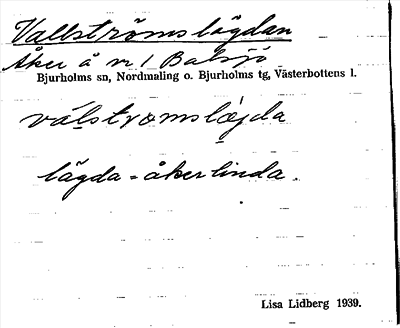 Vallströmslägdan
Åker å nr 1 Balsjö
Bjurholms sn, Nordmaling o. Bjurholms tg, Västerbottens l.
välstromslæjda
lägda = åkerlinda.
Lisa Lidberg 1939.